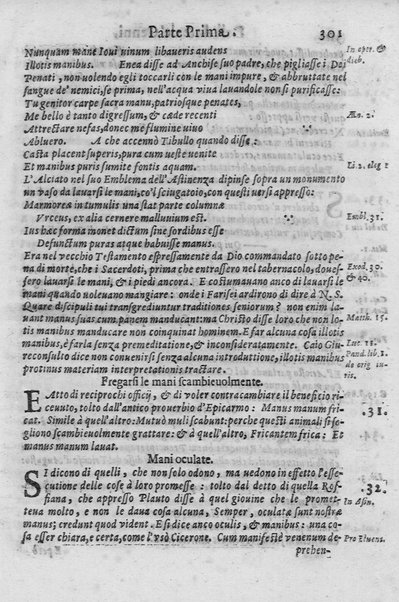 Parte Prima. 301
Nunquam mane Ioui vinum libaueris audens
Illotis manibus. Enea disse ad Anchise suo padre, che pigliasse i Dei
Penati, non uolendo egli toccarli con le mani impure, & abbruttate nel
sangue de' nemici, se prima, nell'acqua viua lauandole non si purificasse:
Tu genitor carpe sacra manu, patriosque penates,
Me bello è tanto digressum, & cæde recenti
Attrectare nefas, donec me flumine uiuo
Abluero. A che accennò Tibullo quando disse:
Casta placent superis, pura cum ueste venite
Et manibus puris sumite fontis aquam.
L'Alciato nel suo Emblema dell'Astinenza dipinse sopra un monumento
un vaso da lauarsi le mani, co'l sciugatoio, con questi versi appresso:
Marmoreæ in tumulis una stat parte columnæ
Vrceus, ex alia cernere malluuium est.
Ius hæc forma monet dictum sine sordibus esse
Defunctum puras atque habuisse manus.
Era nel vecchio Testamento espressamente da Dio commandato sotto pe-
na di morte, che i Sacerdoti, prima che entrassero nel tabernacolo, doues-
sero lauarsi le mani, & i piedi ancora. E costumauano anco di lauarsi le
mani quando uoleuano mangiare: onde i Farisei ardirono di dire à N. S.
Quare discipuli tui transgrediuntur traditiones seniorum? non enim la-
uant manus suas cum panem manducant: ma Christo disse loro che non lo-
tis manibus manducare non coinquinat hominem. E far alcuna cosa illotis
manibus, è farla senza premeditatione, & inconsideratamente. Caio Giu-
reconsulto dice non conuenirsi senza alcuna introduttione, illotis manibus
protinus materiam interpretationis tractare.
Pregarsi le mani scambieuolmente.
E Atto di reciprochi officij, & di voler contracambiare il beneficio ri-
ceuuto, tolto dall'antico prouerbio d'Epicarmo: Manus manum fri-
cat. Simile à quell'altro: Mutuò muli scabunt: perche questi animali si so-
gliono scambieuolmente grattare: & à quell'altro, Fricantem frica: Et
manus manum lauat.
Mani oculate.
SI dicono di quelli, che non solo odono, ma uedono in effetto l'esse-
cutione delle cose à loro promesse: tolto dal detto di quella Rof-
fiana, che appresso Plauto disse à quel giouine che le promet-
teua molto, e non le daua cosa alcuna, Semper, oculatæ sunt nostræ
manus; credunt quod vident. E si dice anco oculis, & manibus: una co-
sa esser chiara, e certa, come l'vsò Cicerone. Cum manifestò venenum de-
prehen-
In oper. &
dieb.
Æn. 2.
Li. 2. eleg. 1
Embl. 31.
Exod. 30.
& 40.
Matth. 15.
Luc. 11.
Pand. lib. 1.
de orig iu-
ris.
.31.
.32.
In Asin.
Pro Cluens.